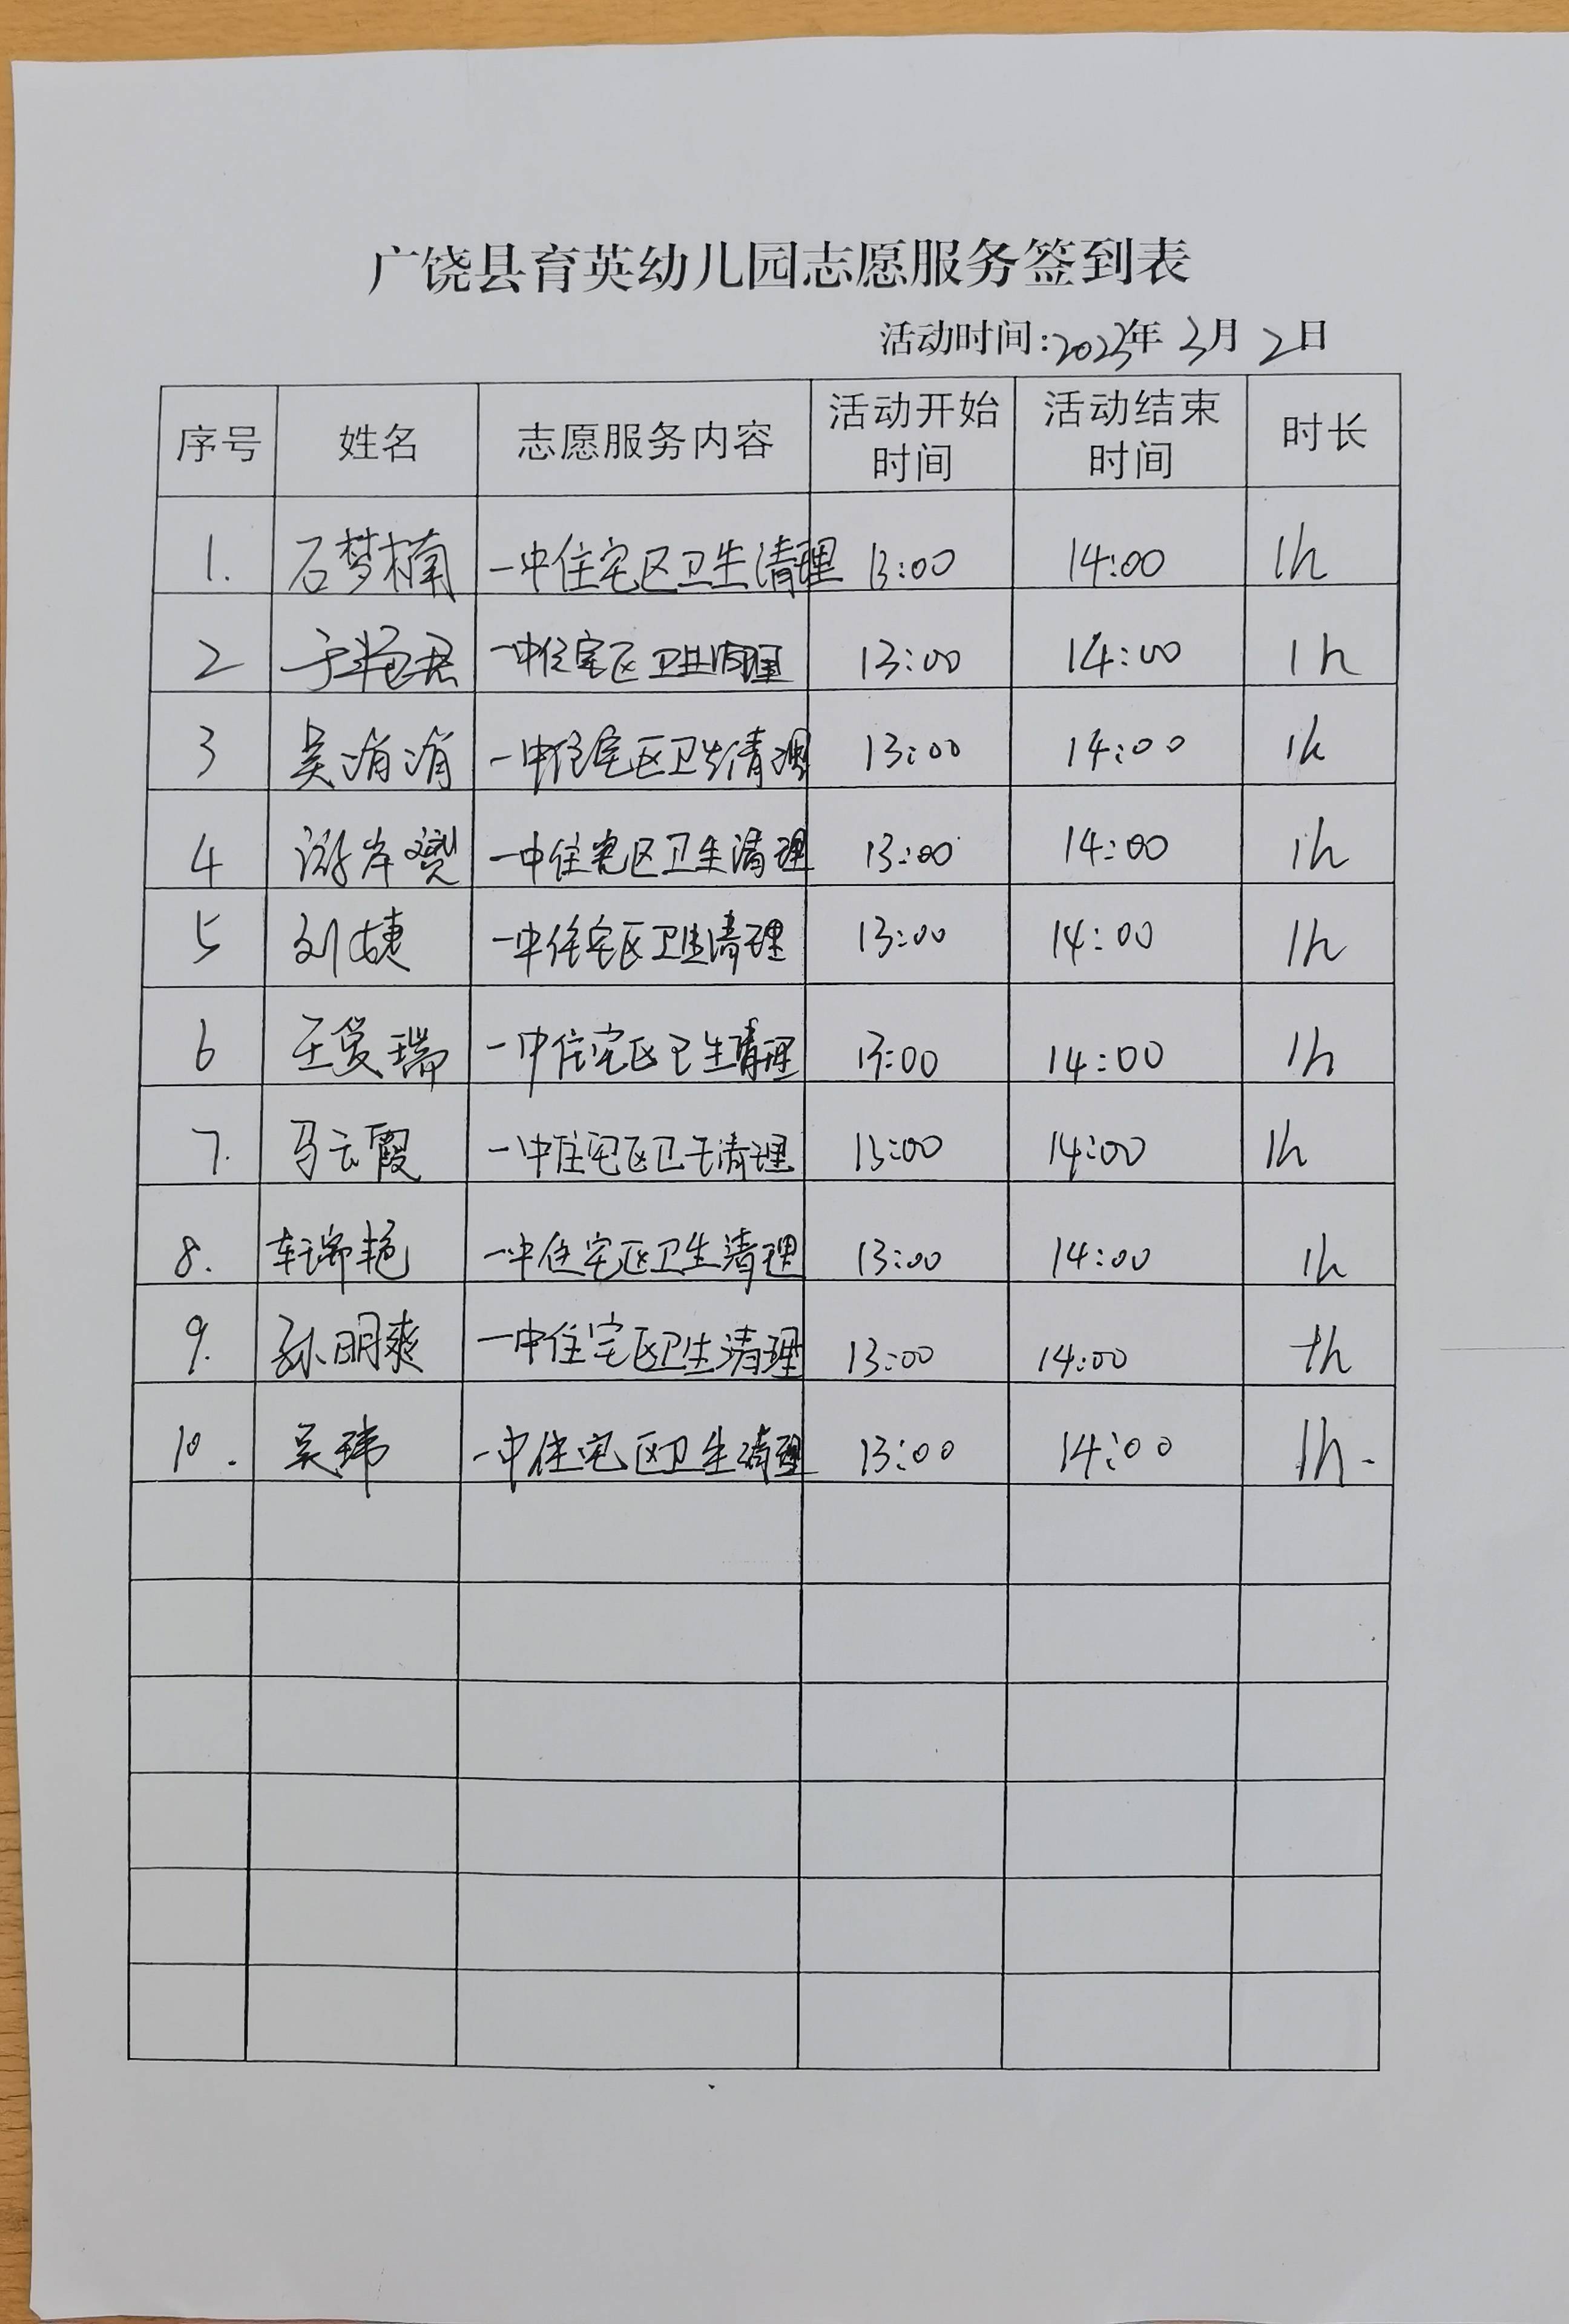 广饶县育英幼儿园志愿服务签到表
活动时间:2023年 3月 2日
序号 姓名 志愿服务内容 活动开始时间 活动结束时间 时长
1. 石梦楠 一中住宅区卫生清理 13:00 14:00 1h
2 于艳君 一中住宅区卫生清理 13:00 14:00 1h
3 吴涓涓 一中住宅区卫生清理 13:00 14:00 1h
4 一中住宅区卫生清理 13:00 14:00 1h
5 刘婕 一中住宅区卫生清理 13:00 14:00 1h
6 王 瑞 一中住宅区卫生清理 13:00 14:00 1h
7. 马云霞 一中住宅区卫生清理 13:00 14:00 1h
8. 车瑞艳 一中住宅区卫生清理 13:00 14:00 1h
9. 孙明爽 一中住宅区卫生清理 13:00 14:00 1h
10. 吴玮 一中住宅区卫生清理 13:00 14:00 1h.